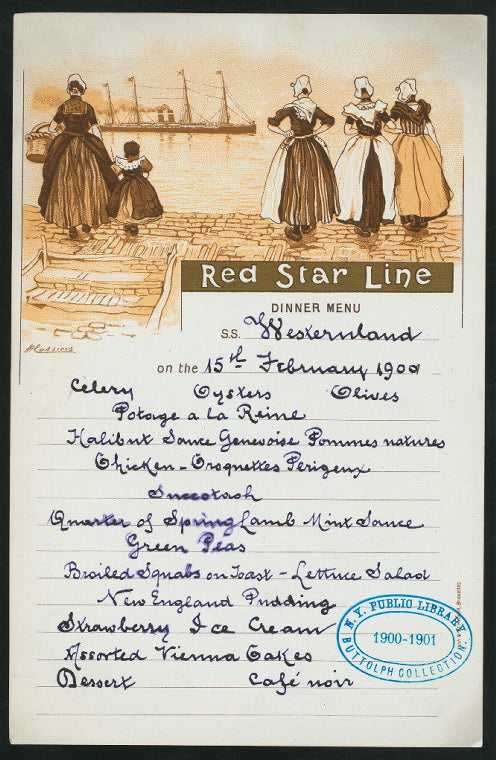 H Cassiers
Red Star Line
DINNER MENU
S.S. Westernland
on the 15th February 1900
Celery Oysters Olives
Potage a la Reine
Halibut Sauce Genevoise Pommes natures
Chicken-Croquettes Perigeux
Succotash
Quarter of Spring Lamb Mint Sauce
Green Peas
Broiled Squabs on Toast - Lettuce Salad
New England Pudding
Strawberry Ice Cream
Assorted Vienna Cakes
Dessert Café noir
N.Y. PUBLIC LIBRARY
1900-1901
BUTTOLPH COLLECTION.